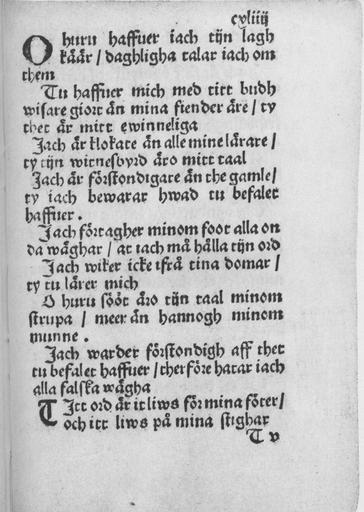 cxliiij
O huru haffuer iach tijn lagh
käär / daghligha talar iach om
them
Tu haffuer mich med titt budh
wisare giort än mina fiender äre / ty
thet är mitt ewinneliga
Jach är klokate än alle mine lärare /
ty tijn witnesbyrd äro mitt taal
Jach är förstondigare än the gamle /
ty iach bewarar hwad tu befalet
haffuer .
Jach förtagher minom foot alla on
da wäghar / at iach må hålla tijn ord
Jach wiker icke ifrå tina domar /
ty tu lärer mich
O huru sööt äro tijn taal minom
strupa / meer än hannogh minom
munne .
Jach warder förstondigh aff thet
tu befalet haffuer / ther före hatar iach
alla falska wägha
TItt ord är it liws för mina föter /
och itt liws på mina stighar
T v